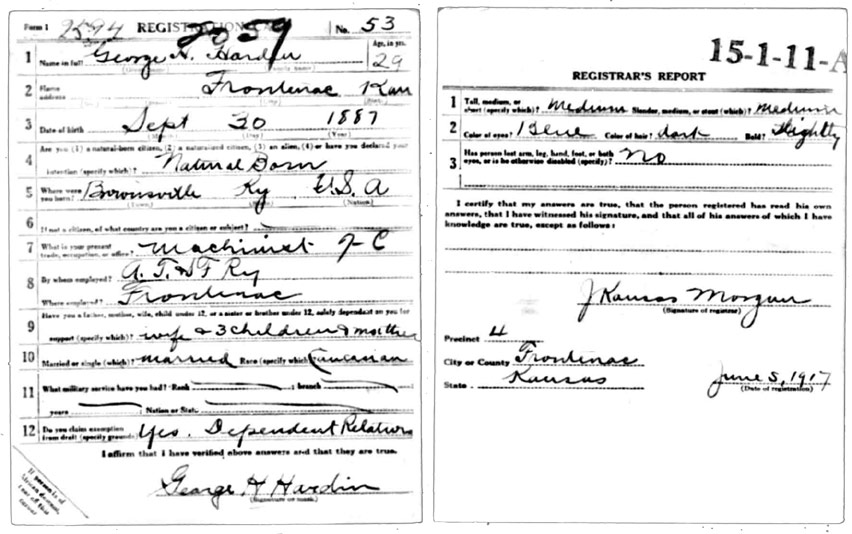 Form 1 2594 REGISTRATION CARD 2059 No. 53
1 Name in full George H. Hardin Age, in yrs. 29
2 Home address Frontenac Kan
3 Date of birth Sept 30 1887
(Month) (Day) (Year)
4 Are you (1) a natural-born citizen, (2) a naturalized citizen, (3) an alien, (4) or have you declared your
intention (specify which)? Natural Born
5 Where were you born? Brownsville Ky U.S.A
(Town) (State) (Nation)
6 If not a citizen, of what country are you a citizen or subject?
7 What is your present trade, occupation, or office? Machinist
8 By whom employed? A.T. & S F Ry
Where employed? Frontenac
9 Have you a father, mother, wife, child under 12, or a sister or brother under 12, solely dependent on you for
support (specify which)? wife & 3 children & mother
10 Married or single (which)? Married Race (specify which)? Caucasian
11 What military service have you had? Rank ; branch
years ; Nation or State
12 Do you claim exemption from draft (specify grounds)? Yes. Dependent Relations
I affirm that I have verified above answers and that they are true.
George H Hardin
(Signature or mark)
If person is of
African descent,
tear off this
corner
15-1-11-A
REGISTRAR'S REPORT
1 Tall, medium, or short (specify which)? Medium Slender, medium, or stout (which)? Medium
2 Color of eyes? Blue Color of hair? dark Bald? Slightly
3 Has person lost arm, leg, hand, foot, or both eyes, or is he otherwise disabled (specify)? No
I certify that my answers are true, that the person registered has read his own
answers, that I have witnessed his signature, and that all of his answers of which I have
knowledge are true, except as follows:
J Kansas Morgan
(Signature of registrar)
Precinct 4
City or County Frontenac
State Kansas June 5, 1917
(Date of registration)